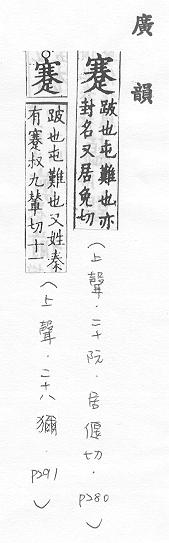 廣韻
蹇 跛也屯難也亦
封名又居免切
(上聲.二十阮.居偃切.P280)
蹇 跛也屯難也又姓秦
有蹇叔九輦切十一
(上聲.二十八獮.P291)